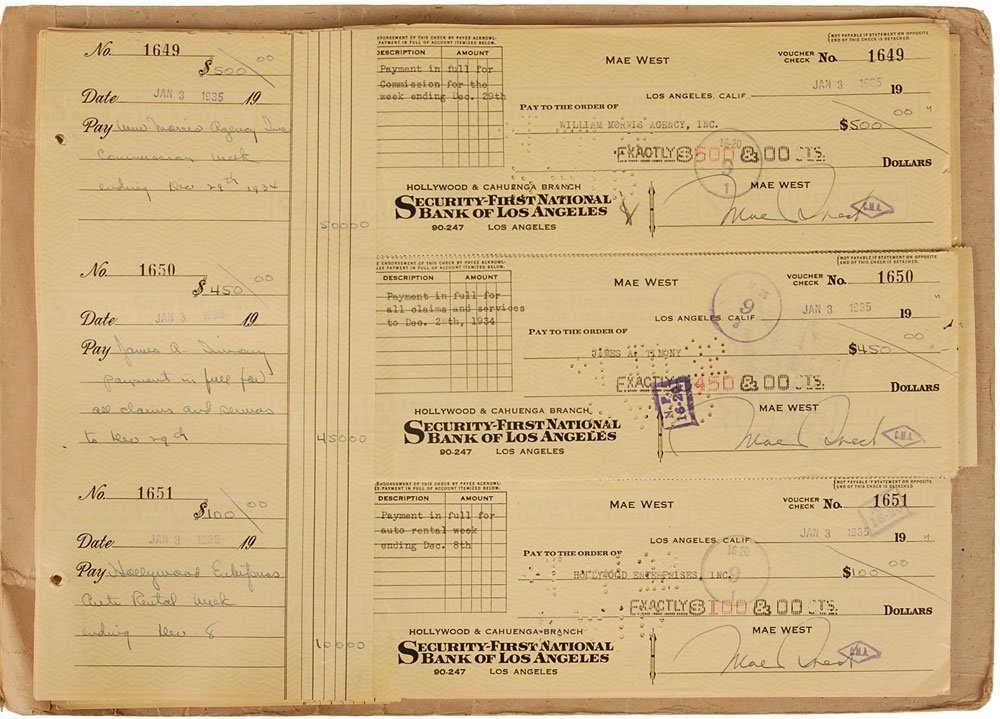 No. 1649
$500 00
Date JAN 3 1935 19
Pay Wm Morris Agency Inc
Commission week
ending Dec 29th 1934
50000
No. 1650
$450 00
Date JAN 3 1935 19
Pay James A Timony
payment in full for
all claims and services
to Dec 29th
45000
No. 1651
$100 00
Date JAN 3 1935 19
Pay Hollywood Enterprises
Auto Rental week
ending Dec 8
10000
ENDORSEMENT OF THIS CHECK BY PAYEE ACKNOWL-
PAYMENT IN FULL OF ACCOUNT ITEMIZED BELOW.
DESCRIPTION AMOUNT
Payment in full for
Commission for the
week ending Dec. 29th
MAE WEST
NOT PAYABLE IF STATEMENT ON OPPOSITE
END OF THIS CHECK IS DETACHED.
VOUCHER CHECK No. 1649
LOS ANGELES, CALIF. JAN 3 1935 19
PAY TO THE ORDER OF
WILLIAM MORRIS AGENCY, INC. $500 00
EXACTLY $500 & 00 CTS. DOLLARS
16-20
HOLLYWOOD & CAHUENGA BRANCH
SECURITY-FIRST NATIONAL
BANK OF LOS ANGELES
90-247 LOS ANGELES
MAE WEST
Mae West
C.M.A.
ENDORSEMENT OF THIS CHECK BY PAYEE ACKNOWL-
PAYMENT IN FULL OF ACCOUNT ITEMIZED BELOW.
DESCRIPTION AMOUNT
Payment in full for
all claims and services
to Dec. 29th, 1934
MAE WEST
NOT PAYABLE IF STATEMENT ON OPPOSITE
END OF THIS CHECK IS DETACHED.
VOUCHER CHECK No. 1650
LOS ANGELES, CALIF JAN 3 1935 19
PAY TO THE ORDER OF
JAMES A. TIMONY $450 00
EXACTLY $450 & 00 CTS. DOLLARS
16-20
HOLLYWOOD & CAHUENGA BRANCH
SECURITY-FIRST NATIONAL
BANK OF LOS ANGELES
90-247 LOS ANGELES
MAE WEST
Mae West
C.M.A.
ENDORSEMENT OF THIS CHECK BY PAYEE ACKNOWL-
PAYMENT IN FULL OF ACCOUNT ITEMIZED BELOW.
DESCRIPTION AMOUNT
Payment in full for
auto rental week
ending Dec. 8th
MAE WEST
NOT PAYABLE IF STATEMENT ON OPPOSITE
END OF THIS CHECK IS DETACHED.
VOUCHER CHECK No. 1651
16-20
LOS ANGELES, CALIF JAN 3 1935 19
PAY TO THE ORDER OF
HOLLYWOOD ENTERPRISES, INC. $100 00
EXACTLY $100 & 00 CTS. DOLLARS
16-20
HOLLYWOOD & CAHUENGA BRANCH
SECURITY-FIRST NATIONAL
BANK OF LOS ANGELES
90-247 LOS ANGELES
MAE WEST
Mae West
C.M.A.